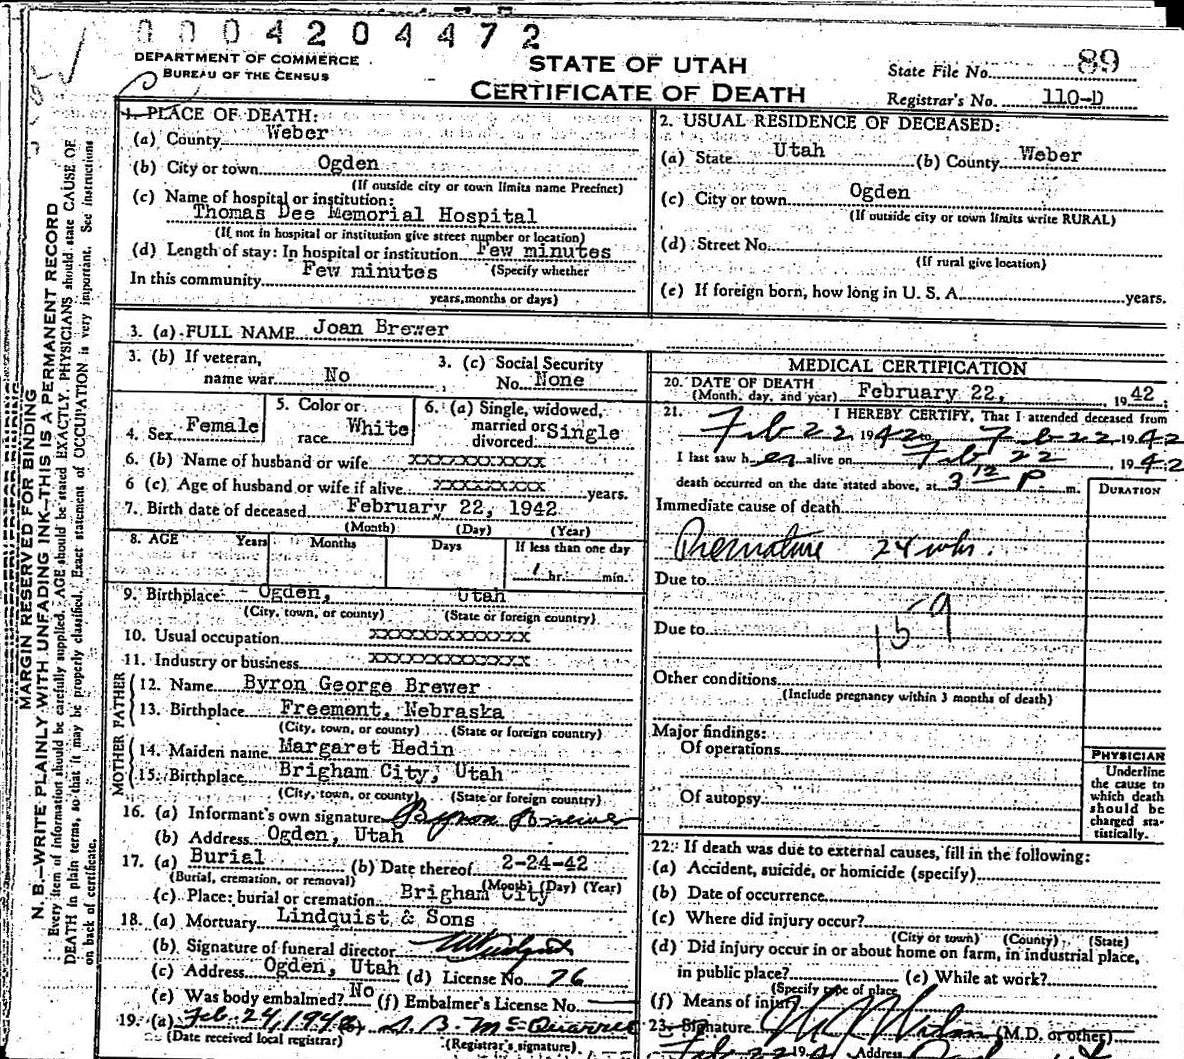 0004204472
DEPARTMENT OF COMMERCE
BUREAU OF THE CENSUS
STATE OF UTAH
CERTIFICATE OF DEATH
State File No. 89
Registrar's No. 110-D
MARGIN RESERVED FOR BINDING
N. B.—WRITE PLAINLY WITH UNFADING INK—THIS IS A PERMANENT RECORD
Every item of information should be carefully supplied. AGE should be stated EXACTLY. PHYSICIANS should state CAUSE OF
DEATH in plain terms, so that it may be properly classified. Exact statement of OCCUPATION is very important. See instructions
on back of certificate.
1. PLACE OF DEATH:
(a) County Weber
(b) City or town Ogden
(If outside city or town limits name Precinct)
(c) Name of hospital or institution:
Thomas Dee Memorial Hospital
(If not in hospital or institution give street number or location)
(d) Length of stay: In hospital or institution Few minutes
In this community Few minutes (Specify whether
years, months or days)
2. USUAL RESIDENCE OF DECEASED:
(a) State Utah (b) County Weber
(c) City or town Ogden
(If outside city or town limits write RURAL)
(d) Street No.
(If rural give location)
(e) If foreign born, how long in U. S. A. years.
3. (a) FULL NAME Joan Brewer
3. (b) If veteran,
name war No
3. (c) Social Security
No. None
4. Sex Female
5. Color or
race White
6. (a) Single, widowed,
married or
divorced Single
6. (b) Name of husband or wife xxxxxxxxxxxx
6 (c) Age of husband or wife if alive xxxxxxxxx years.
7. Birth date of deceased February 22, 1942
(Month) (Day) (Year)
8. AGE Years Months Days If less than one day
1 hr. min.
9. Birthplace Ogden, Utah
(City, town, or county) (State or foreign country)
10. Usual occupation xxxxxxxxxxxxx
11. Industry or business xxxxxxxxxxxxx
FATHER
12. Name Byron George Brewer
13. Birthplace Freemont, Nebraska
(City, town, or county) (State or foreign country)
MOTHER
14. Maiden name Margaret Hedin
15. Birthplace Brigham City, Utah
(City, town, or county) (State or foreign country)
16. (a) Informant's own signature Byron Brewer
(b) Address Ogden, Utah
17. (a) Burial (b) Date thereof 2-24-42
(Burial, cremation, or removal) (Month) (Day) (Year)
(c) Place: burial or cremation Brigham City
18. (a) Mortuary Lindquist & Sons
(b) Signature of funeral director
(c) Address Ogden, Utah (d) License No. 76
(e) Was body embalmed? No (f) Embalmer's License No.
19. (a) Feb. 24, 1942 S. B. McQuarrie
(Date received local registrar) (Registrar's signature)
MEDICAL CERTIFICATION
20. DATE OF DEATH
(Month, day, and year) February 22, 1942
21. I HEREBY CERTIFY, That I attended deceased from
Feb 22 1942 to Feb 22 1942
I last saw her alive on Feb 22, 1942
death occurred on the date stated above, at 3 12 P m.
DURATION
Immediate cause of death
Premature 24 wks.
Due to
159
Due to
Other conditions
(Include pregnancy within 3 months of death)
Major findings:
Of operations
Of autopsy
PHYSICIAN
Underline
the cause to
which death
should be
charged sta-
tistically.
22. If death was due to external causes, fill in the following:
(a) Accident, suicide, or homicide (specify)
(b) Date of occurrence
(c) Where did injury occur?
(City or town) (County) (State)
(d) Did injury occur in or about home on farm, in industrial place,
in public place? (e) While at work?
(Specify type of place
(f) Means of injury
23. Signature (M.D. or other)
Feb 22 194 Address